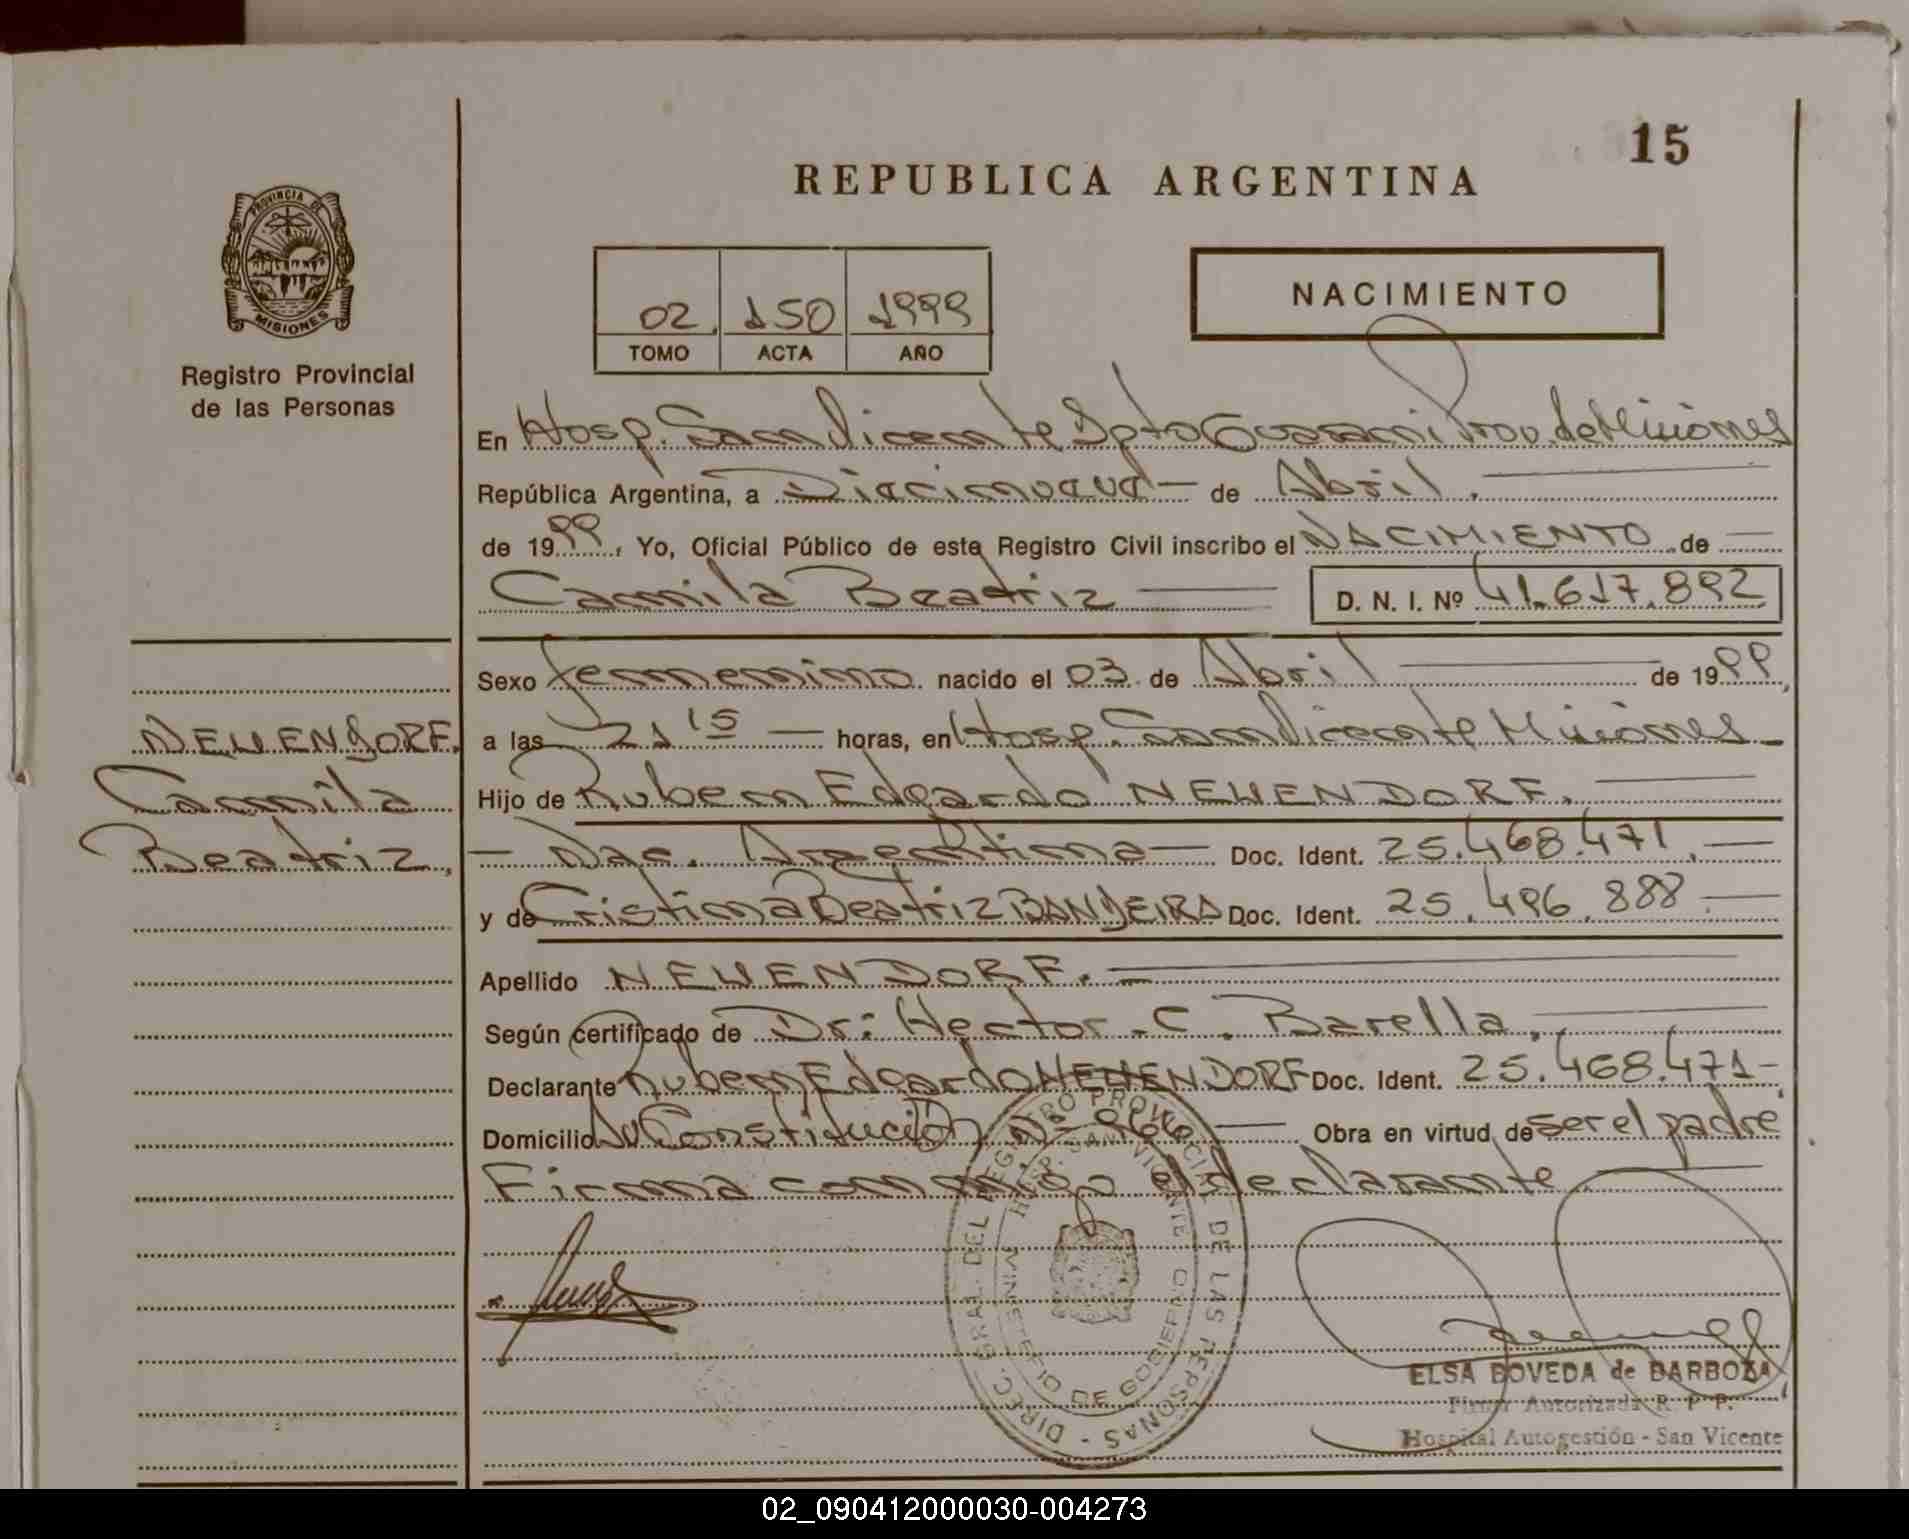 15
REPUBLICA ARGENTINA
PROVINCIA DE
MISIONES
Registro Provincial
de las Personas
02 150 1999
TOMO ACTA AÑO
NACIMIENTO
En Hosp. San Vicente Dpto Guarani Prov. de Misiones
República Argentina, a Diecinueve — de Abril.
de 1999, Yo, Oficial Público de este Registro Civil inscribo el NACIMIENTO de
Camila Beatriz D. N. I. Nº 41.617.892
Sexo femenino nacido el 03 de Abril de 1999,
a las 21 15 — horas, en Hosp. San Vicente Misiones
Hijo de Ruben Edgardo NEUENDORF.
— Nac. Argentina — Doc. Ident. 25.468.471.—
y de Cristina Beatriz BANDEIRA Doc. Ident. 25.496.888
NEUENDORF.
Camila
Beatriz,
Apellido NEUENDORF.
Según certificado de Dr: Hector .C. Barella.
Declarante Ruben Edgardo NEUENDORF Doc. Ident. 25.468.471-
Domicilio Constitución Nº 966 — Obra en virtud de ser el padre
Firma conmigo el declarante
DIREC. GRAL. DEL REGISTRO PROVINCIAL DE LAS PERSONAS -
HOSP. SAN VICENTE
MINISTERIO DE GOBIERNO
ELSA BOVEDA de BARBOZA
Firma Autorizada R. P. P.
Hospital Autogestión - San Vicente
02_090412000030-004273